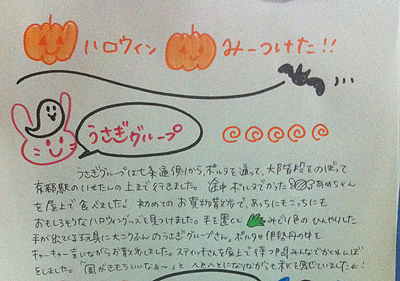 ハロウィン みーつけた!!
うさぎグループ
うさぎグループは七条通側から、ポルタを通って、大階段をのぼって
京都駅のいせたんの上まで行きました。途中ポルタでかった あめちゃん
を屋上で食べました。初めてのお買物散歩で、あっちにもこっちにも
おもしろそうなハロウィングッズを見つけました。手を置くと みどり色のひんやりした
手が出てくる玩具に大こうふんのうさぎグループさん。ポルタや伊勢丹の中を
キャーキャー言いながらお散歩しました。スティッチさんを屋上で待つ間みんなでかくれんぼ
をしました。「風がきもちいいなぁ〜♪」とへとへとになりながらも秋を感じていましたよ!